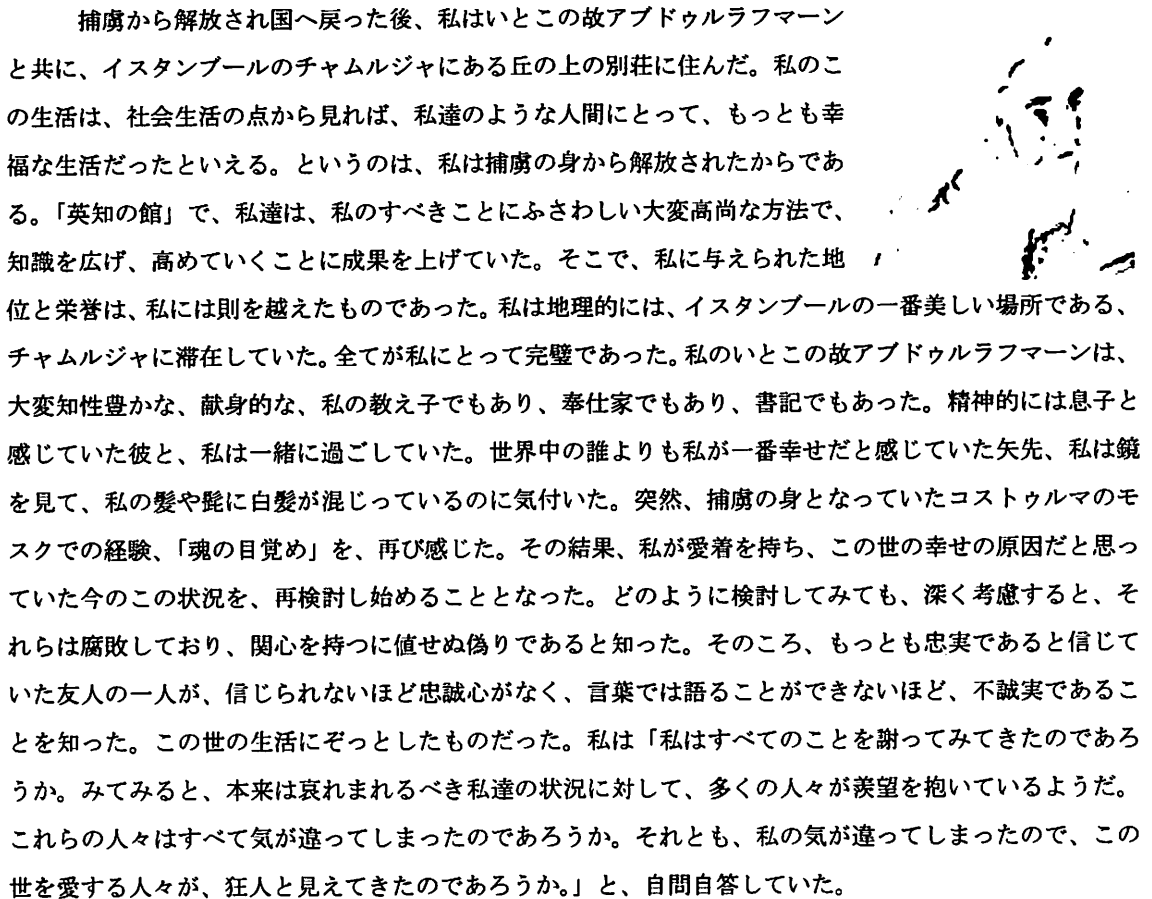 捕虜から解放され国へ戻った後、私はいとこの故アブドゥルラフマーン
と共に、イスタンブールのチャムルジャにある丘の上の別荘に住んだ。私のこ
の生活は、社会生活の点から見れば、私達のような人間にとって、もっとも幸
福な生活だったといえる。というのは、私は捕虜の身から解放されたからであ
る。「英知の館」で、私達は、私のすべきことにふさわしい大変高尚な方法で、
知識を広げ、高めていくことに成果を上げていた。そこで、私に与えられた地
位と栄誉は、私には則を越えたものであった。私は地理的には、イスタンブールの一番美しい場所である、
チャムルジャに滞在していた。全てが私にとって完璧であった。私のいとこの故アブドゥルラフマーンは、
大変知性豊かな、献身的な、私の教え子でもあり、奉仕家でもあり、書記でもあった。精神的には息子と
感じていた彼と、私は一緒に過ごしていた。世界中の誰よりも私が一番幸せだと感じていた矢先、私は鏡
を見て、私の髪や髭に白髪が混じっているのに気付いた。突然、捕虜の身となっていたコストゥルマのモ
スクでの経験、「魂の目覚め」を、再び感じた。その結果、私が愛着を持ち、この世の幸せの原因だと思っ
ていた今のこの状況を、再検討し始めることとなった。どのように検討してみても、深く考慮すると、そ
れらは腐敗しており、関心を持つに値せぬ偽りであると知った。そのころ、もっとも忠実であると信じて
いた友人の一人が、信じられないほど忠誠心がなく、言葉では語ることができないほど、不誠実であるこ
とを知った。この世の生活にぞっとしたものだった。私は「私はすべてのことを謝ってみてきたのであろ
うか。みてみると、本来は哀れまれるべき私達の状況に対して、多くの人々が羨望を抱いているようだ。
これらの人々はすべて気が違ってしまったのであろうか。それとも、私の気が違ってしまったので、この
世を愛する人々が、狂人と見えてきたのであろうか。」と、自問自答していた。